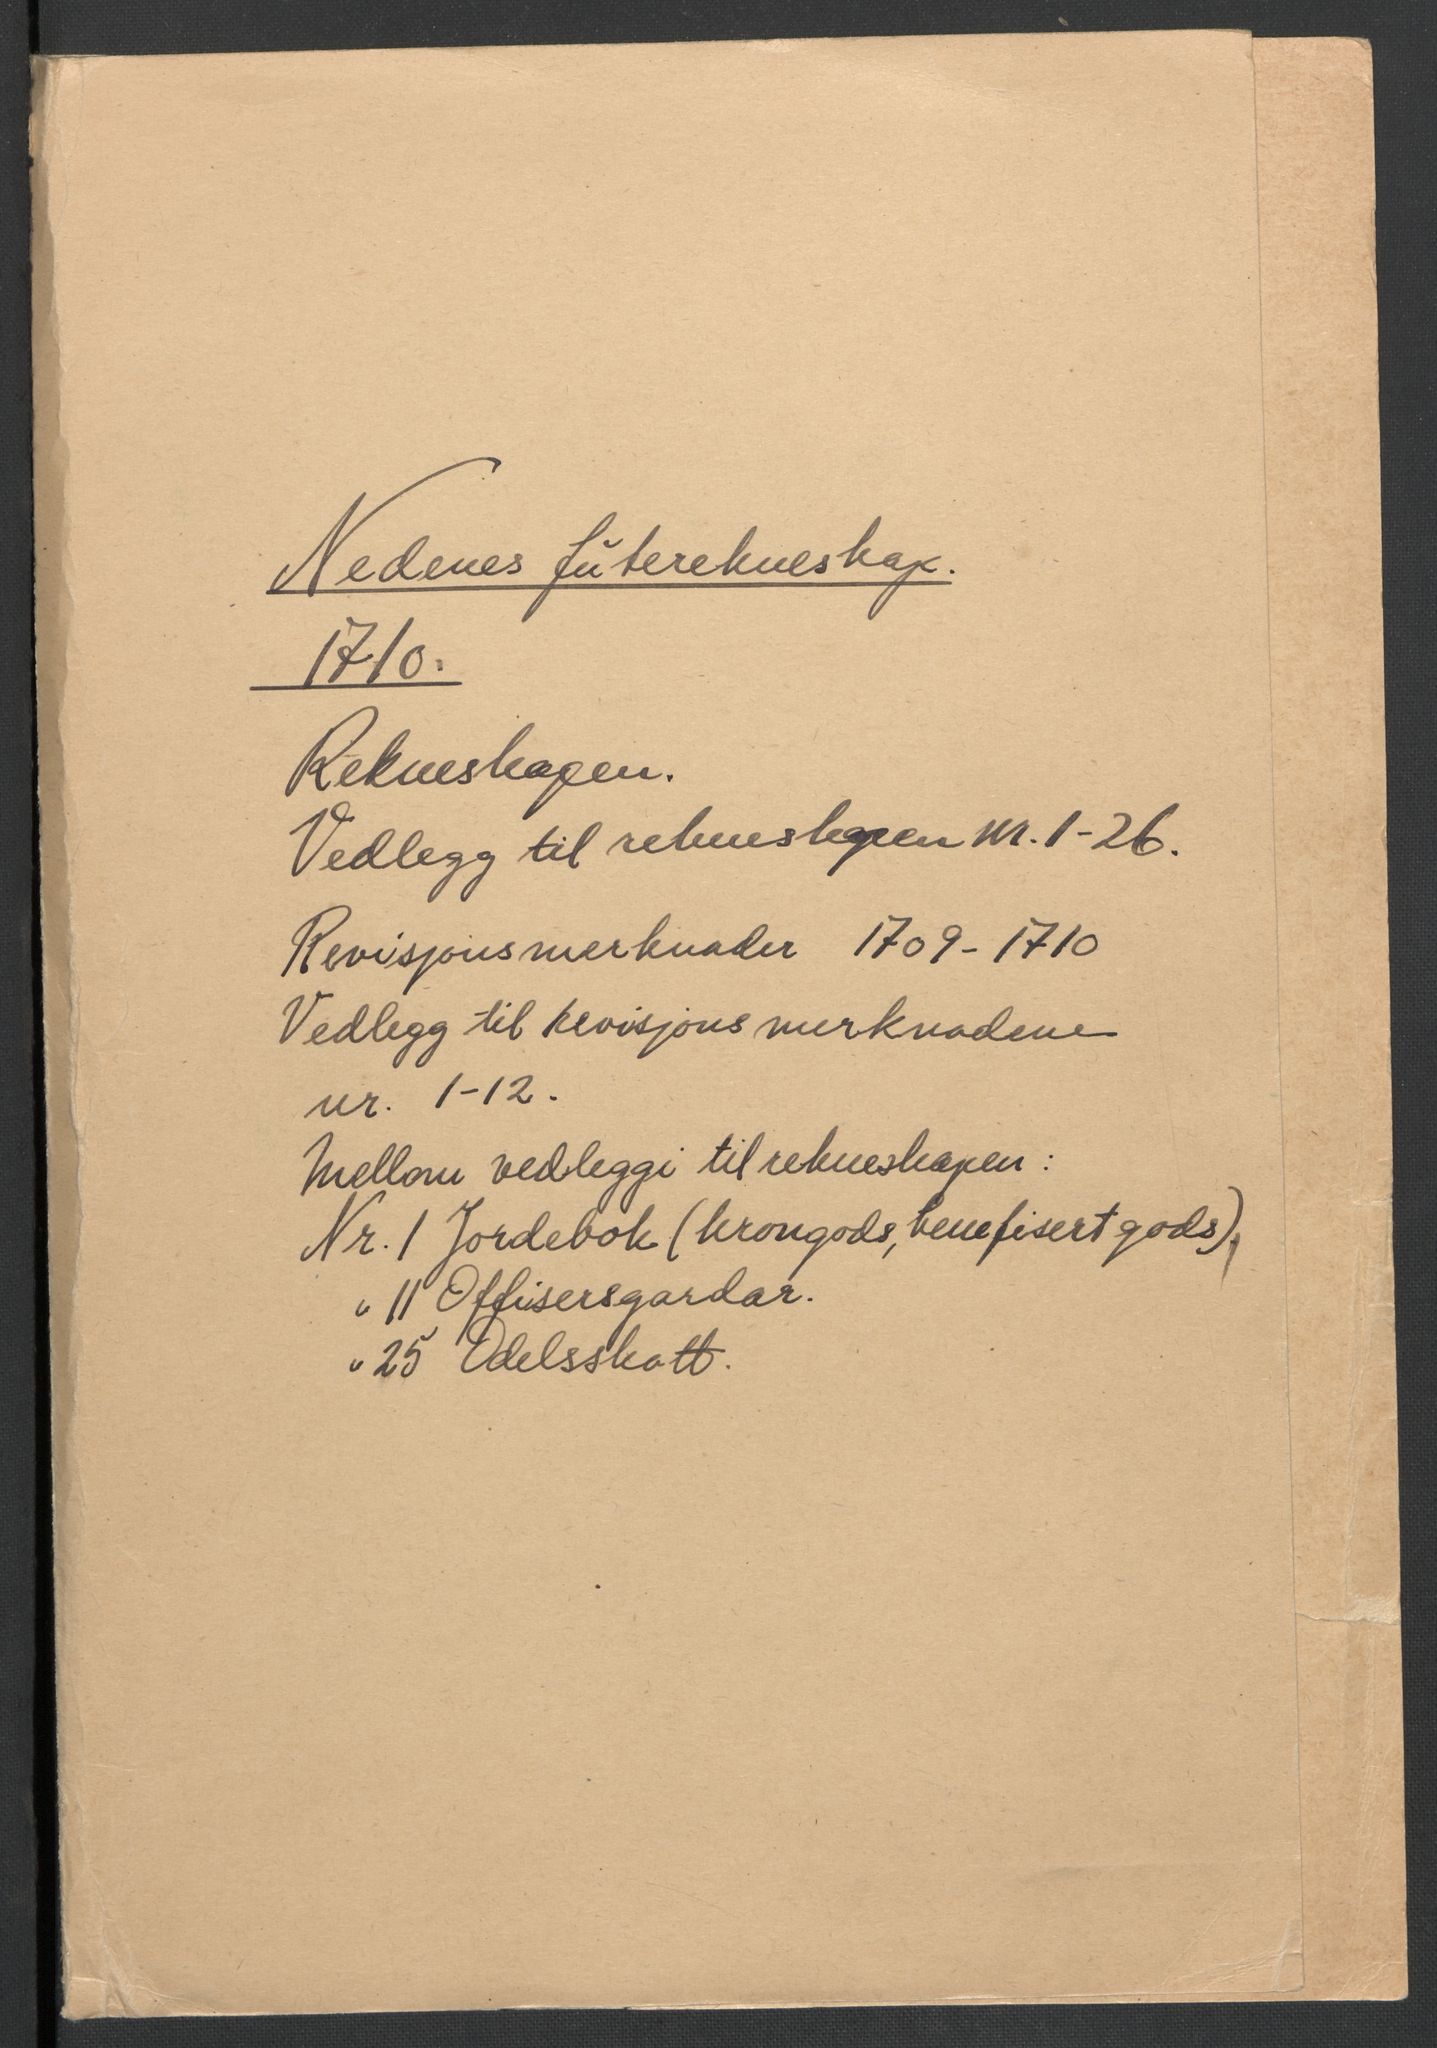 Nedenes futerekneskap.
1710.
Rekneskapen.
Vedlegg til rekneskapen nr. 1-26.
Revisjonsmerknader 1709-1710
Vedlegg til revisjonsmerknadene
nr. 1-12.
Mellom vedleggi til rekneskapen:
Nr. 1 Jordebok (krongods, benefisert gods),
" 11 Offisersgardar.
" 25 Odelsskatt.